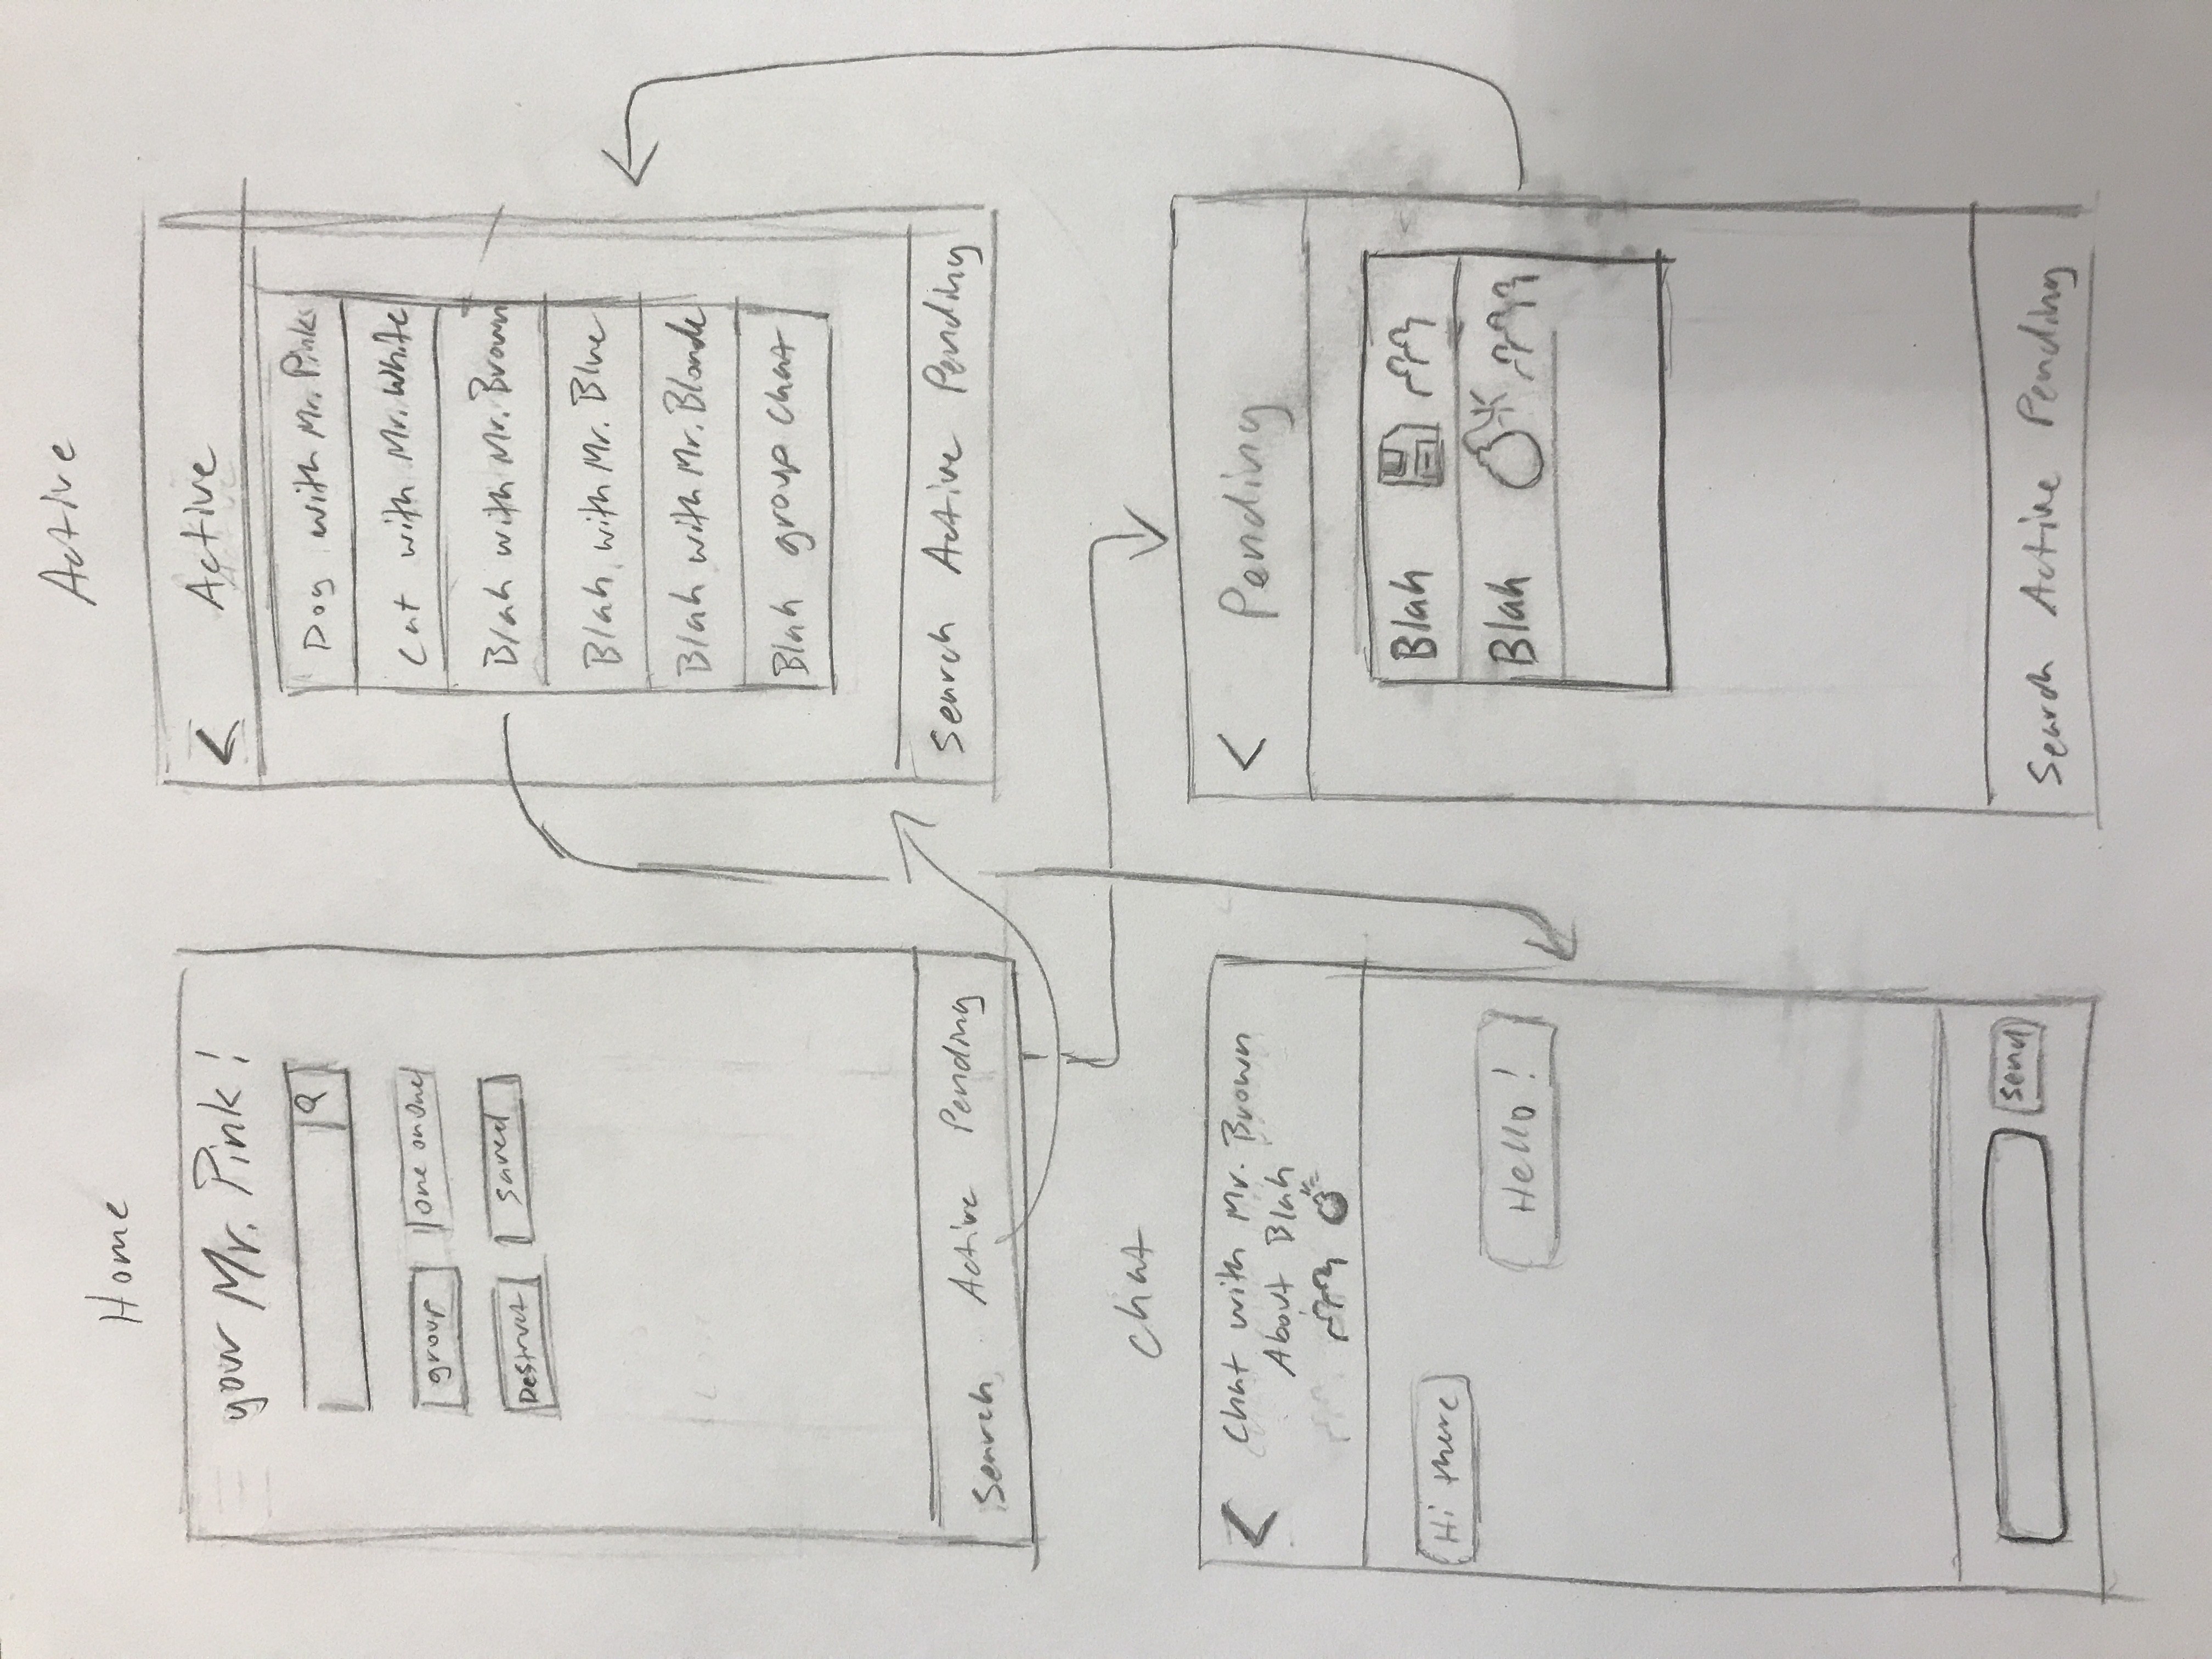 Home
your Mr. Pink!
group
one on one
Destruct
saved
Search Active Pending
Active
< Active
Dog with Mr. Pink
Cat with Mr. White
Blah with Mr. Brown
Blah with Mr. Blue
Blah with Mr. Blonde
Blah group chat
Search Active Pending
Chat
< Chat with Mr. Brown
About Blah
Hi there
Hello!
Send
< Pending
Blah
Blah
Search Active Pending